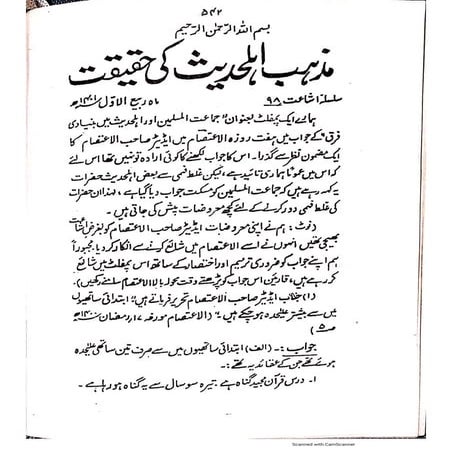 ۵۴۲
بسم اللہ الرحمٰن الرحیم
مذہب اہلحدیث کی حقیقت
سلسلہ اشاعت ۹۸ ماہ ربیع الاوّل ۱۴۰۱ھ
ہمارے ایک پمفلٹ بعنوان "جماعت المسلمین اور اہلحدیث میں بنیادی
فرق" کے جواب میں ہفت روزہ الاعتصام میں ایڈیٹر صاحب الاعتصام کا
ایک مضمون نظر سے گذرا۔ اس کا جواب لکھنے کا کوئی ارادہ تو نہیں تھا اس لئے
کہ اس میں عموماً ہماری تائید ہے، لیکن غلط فہمی سے بعض اہلحدیث حضرات
یہ کہہ رہے ہیں کہ جماعت المسلمین کو مسکت جواب دیا گیا ہے، لہٰذا ان حضرات
کی غلط فہمی دور کرنے کے لئے کچھ معروضات پیش کی جاتی ہیں۔
نوٹ: ہم نے اپنی معروضات ایڈیٹر صاحب الاعتصام کو بغرض اشاعت
بھیجی تھیں انہوں نے اسے الاعتصام میں شائع کرنے سے انکار کر دیا۔ مجبوراً
ہم اپنے جواب کو ضروری ترمیم اور اختصار کے ساتھ اس پمفلٹ میں شائع
کر رہے ہیں، قارئین اس جواب کو پڑھتے وقت محولہ بالا الاعتصام سامنے رکھیں)۔
(۱) جناب ایڈیٹر صاحب الاعتصام تحریر فرماتے ہیں: "ابتدائی ساتھیوں
میں سے بیشتر علیٰحدہ ہو چکے ہیں" (الاعتصام مورخہ ۱۷ رمضان ۱۴۰۰ھ
ص۵)
جواب:۔ (الف) ابتدائی ساتھیوں میں سے صرف تین ساتھی علیٰحدہ
ہوئے تھے جن کے عقائد یہ تھے:۔
۱۔ درس قرآن مجید گناہ ہے، تیرہ سو سال سے یہ گناہ ہو رہا ہے۔
Scanned with CamScanner